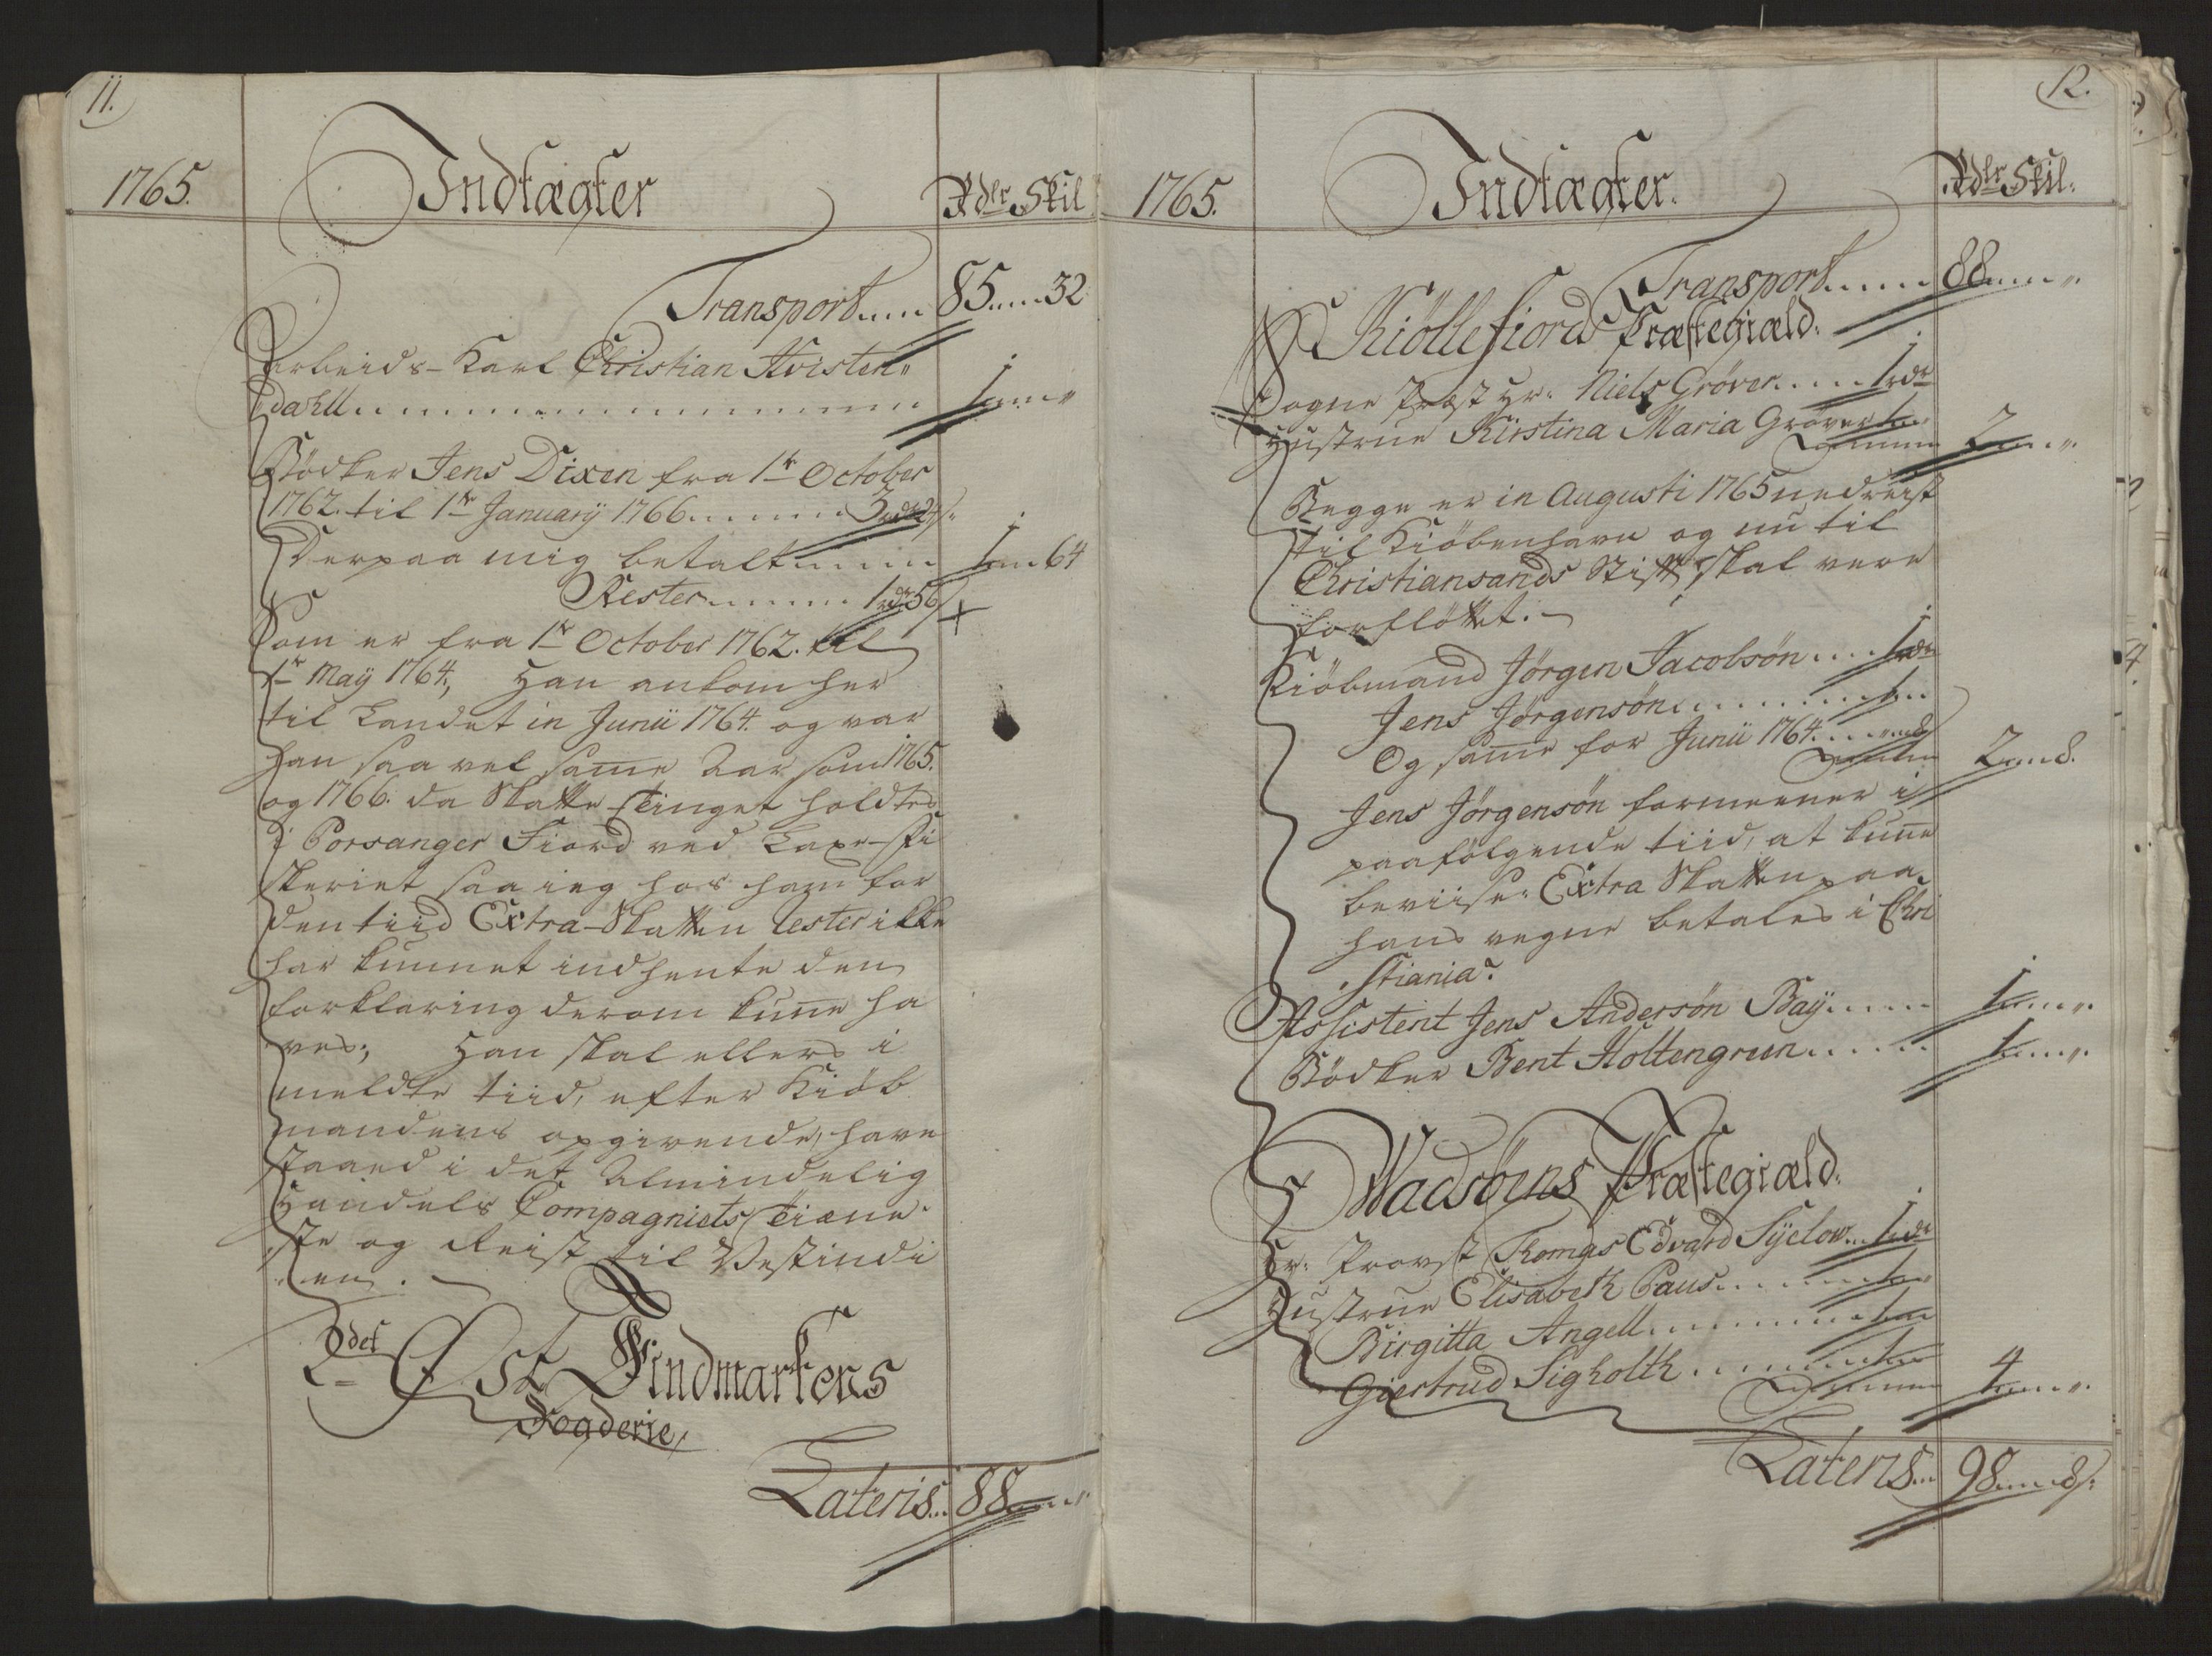 11.
1765.
Indtægter
Rdlr Skil
Transport.... 85....32
Arbeids-Karl Christian Kvisten„
dahll.................... 1....„
Bödker Jens Dixen fra 1te October
1762. til 1te Januarÿ 1766....... 3rdr 24s:
Derpaa mig betalt....... 1....64
Rester....... 1rdr 56s +
Som er fra 1te October 1762. til
1te Maÿ 1764, Han ankom her
til Landet in Junii 1764. og var
han saa vel samme Aar som 1765.
og 1766. da Skatte-Tinget holdtes
i Porsanger Fiord ved Laxe-Fi
skeriet saa ieg hos ham for
den tiid Extra-Skatten Rester ikke
har kunnet indhente den
forklaring derom kunne ha
ves; Han skal ellers i
meldte tiid, efter Kiöb
mandens opgivende, have
staaed i det Almindelig
Handels Compagniets Tiene-
ste og Reist til Vestindi
en.
2det Öst Findmarkens
Fogderie,
Lateris... 88....„
12.
1765.
Indtægter.
Rdlr Skil.
Transport..... 88....„
Kiöllefiords Præstegiæld.
Sogne Præst Hr. Niels Gröver.... 1rdr
Hustrue Kirstina Maria Gröver 1.. 2....„
Begge er in Augusti 1765 nedreist
til Kiöbenhavn og nu til
Christiansands Stift skal vere
forflöttet.
Kiöbmand Jörgen Jacobsön.... 1rdr
Jens Jörgensön.......... 1..„
Og samme for Junii 1764....„..8s 2....8.
Jens Jörgensön formeener i
paafölgende tiid, at kunne
beviise Extra Skatten paa
hans vegne betales i Chri
stiania.
Assistent Jens Andersön Baÿ..... 1....„
Bödker Bent Holtengreen...... 1....„
Wadsöens Præstegiæld.
Hr. Provst Thomas Edvard Sÿelow... 1rdr
Hustrue Elisabeth Paus....... 1..„
Birgitta Angell.......... 1..„
Giertrud Sigholth........ 1..„ 4....„
Lateris... 98....8s: